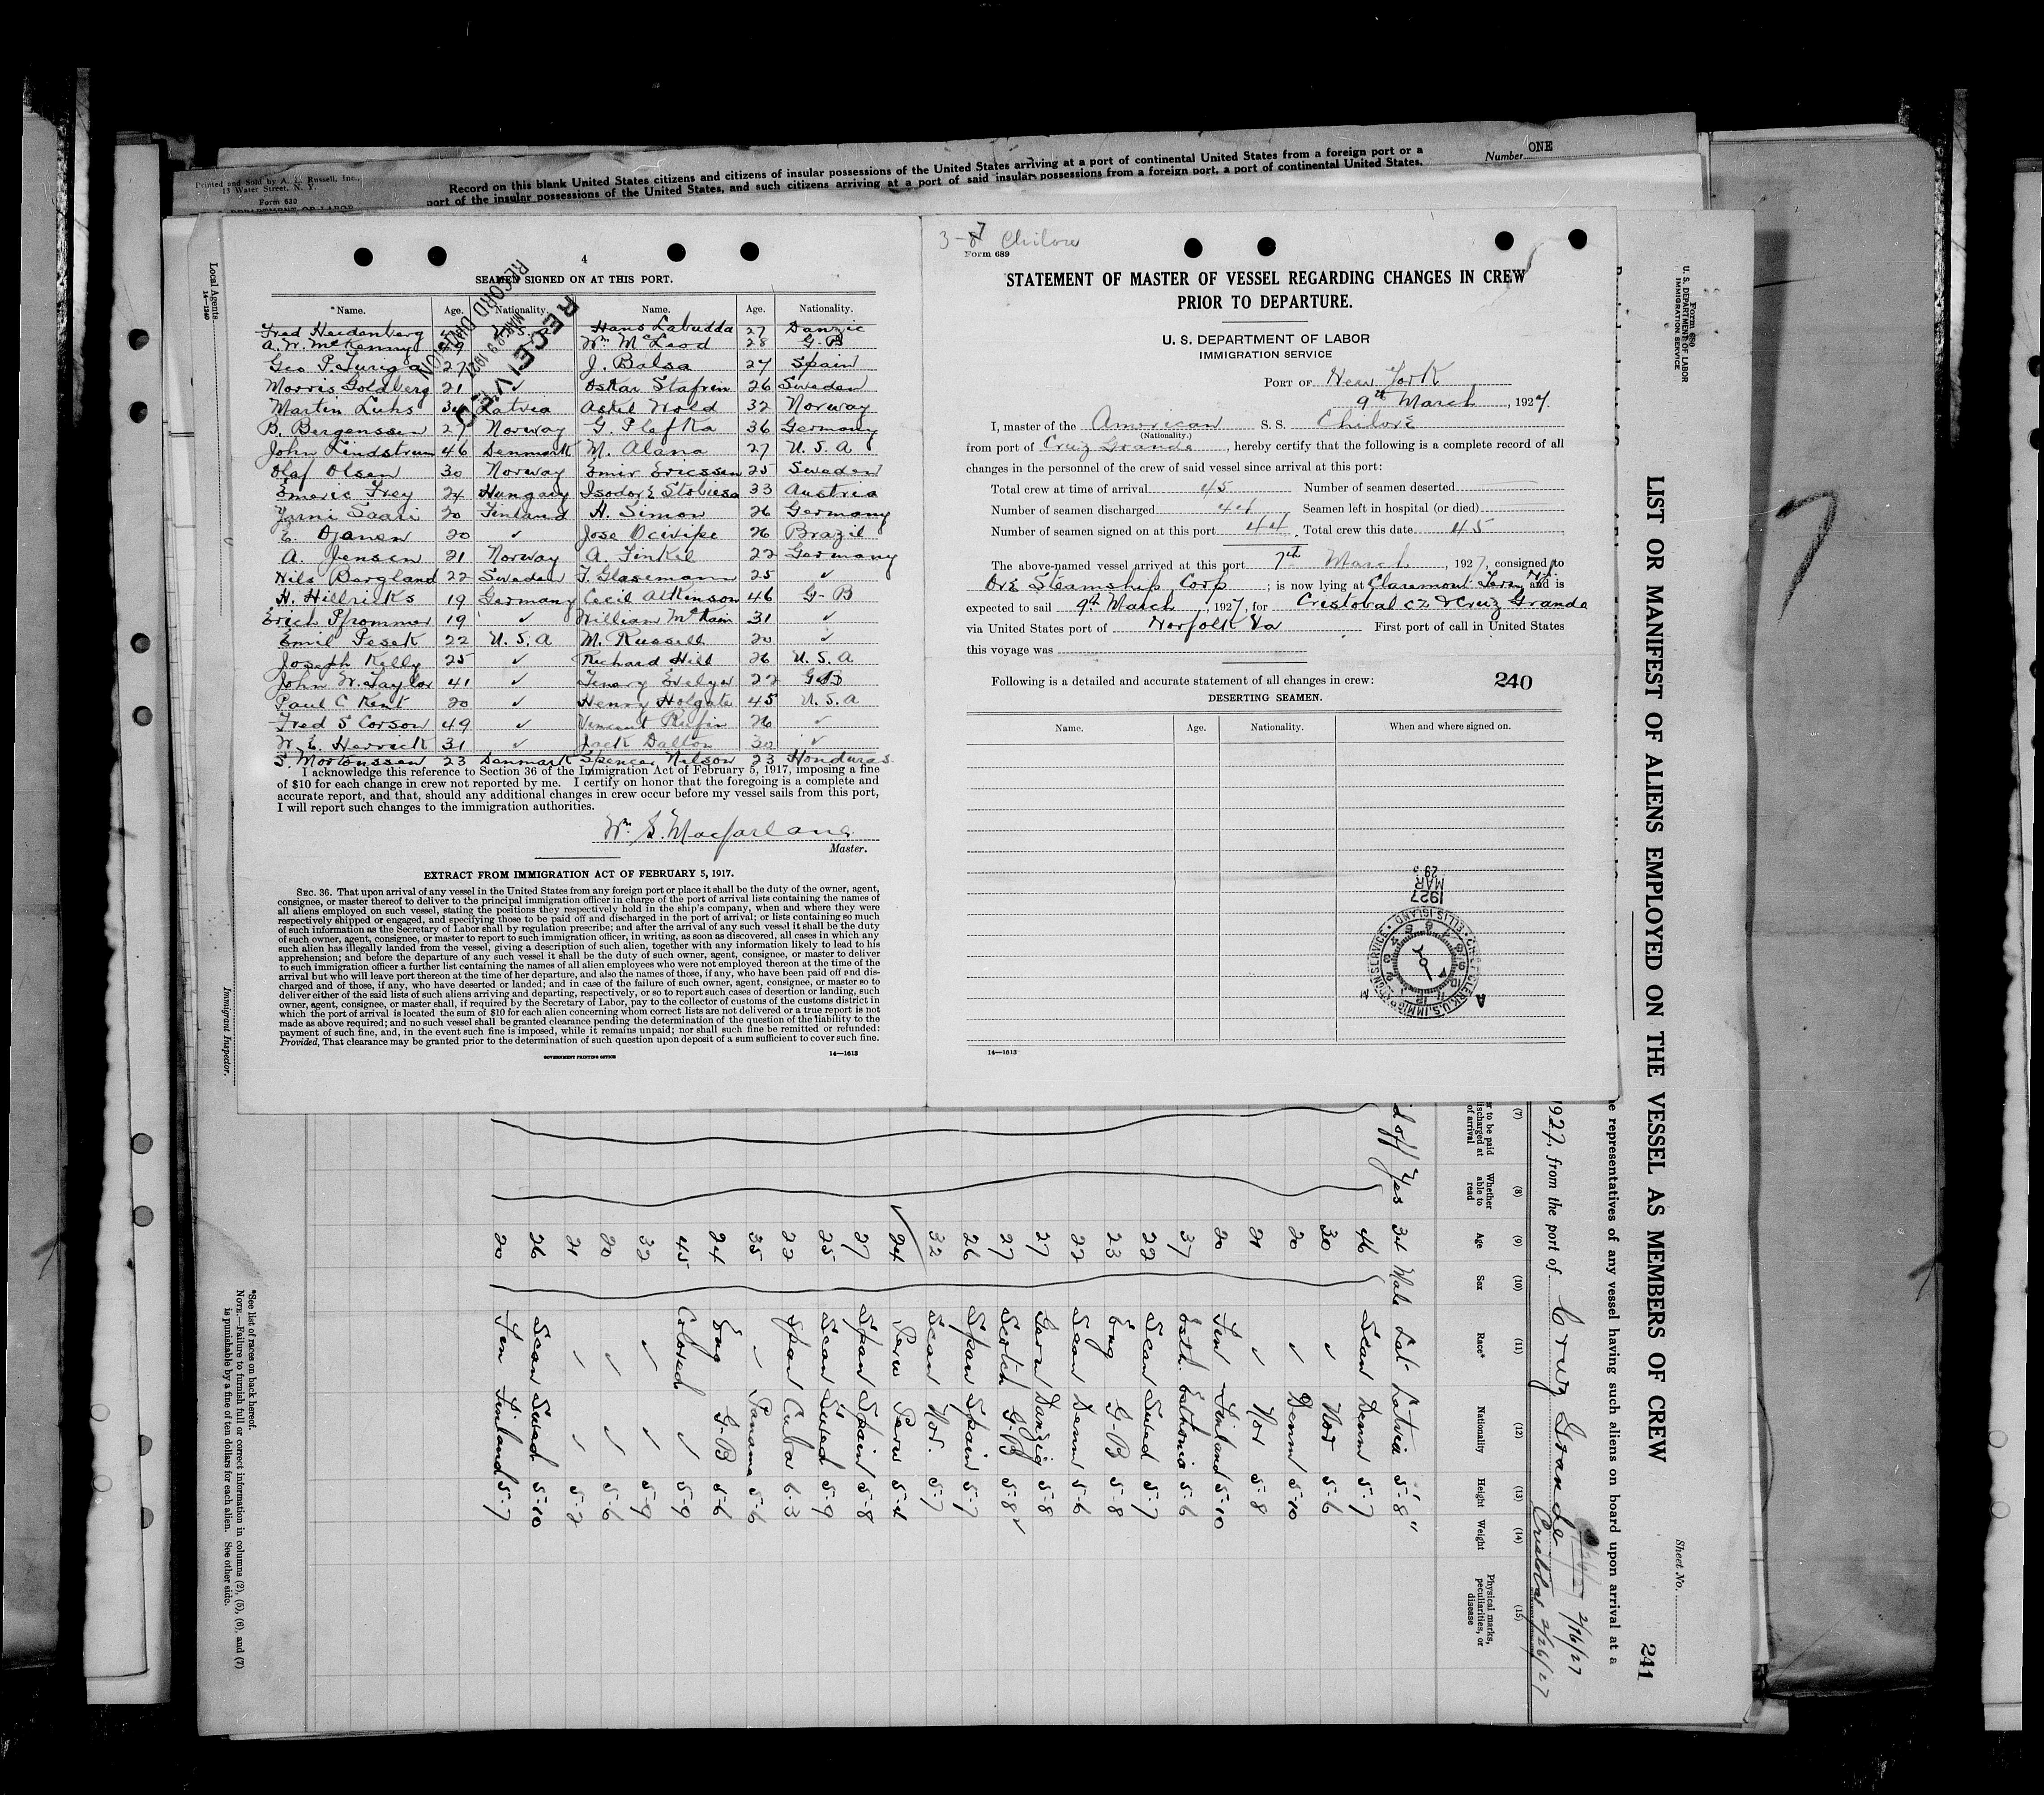 Printed and Sold by A. L. Russell, Inc.,
13 Water Street, N. Y.
Form 630
DEPARTMENT OF LABOR
Record on this blank United States citizens and citizens of insular possessions of the United States arriving at a port of continental United States from a foreign port or a
port of the insular possessions of the United States, and such citizens arriving at a port of said insular possessions from a foreign port, a port of continental United States.
Number ONE
Local Agents.
14—1240
Immigrant Inspector.
4
SEAMEN SIGNED ON AT THIS PORT.
*Name. Age. Nationality. Name. Age. Nationality.
RECEIVED
MAR 9 1927
RECORD DIVISION
Fred Heidenberg Hans Labudda 27 Danzic
A. W. McKenney Wm McLeod 28 G-B
Geo P. 27 J. Balsa 27 Spain
Morris Goldberg 21 ✓ Oskar Stafrin 26 Sweden
Martin Luhs 34 Latvia Askil Wold 32 Norway
B. Bergenssen 27 Norway G. Plefka 36 Germany
John Lindstrum 46 Denmark M. Alana 27 U. S. A
Olaf Olsen 30 Norway Emir Ericssen 25 Sweden
Emeric Frey 24 Hungary Isodore Stobiesa 33 Austria
Yrni Saari 20 Finland H. Simon 26 Germany
E. Ojanen 20 ✓ Jose Ocivipe 26 Brazil
A. Jensen 21 Norway A. Finkel 22 Germany
Nils Bergland 22 Sweden F. Glasemann 25 ✓
H. Hillricks 19 Germany Cecil Atkenson 46 G-B
Erich Pfrommer 19 ✓ William McKain 31 ✓
Emil Pesek 22 U. S. A M. Russell 20 ✓
Joseph Kelly 25 ✓ Richard Hill 26 U. S. A
John W. Taylor 41 ✓ Evelyn 22 G-B
Paul C Kent 20 ✓ Henry Holgate 45 U. S. A
Fred S Corson 49 ✓ Vincent Rufin 26 ✓
W. E. Herrick 31 ✓ Jack Dalton 30 ✓
S. Mortenssen 23 Denmark Spencer Nelson 23 Honduras
I acknowledge this reference to Section 36 of the Immigration Act of February 5, 1917, imposing a fine
of $10 for each change in crew not reported by me. I certify on honor that the foregoing is a complete and
accurate report, and that, should any additional changes in crew occur before my vessel sails from this port,
I will report such changes to the immigration authorities.
Wm. S. Macfarlane
Master.
EXTRACT FROM IMMIGRATION ACT OF FEBRUARY 5, 1917.
SEC. 36. That upon arrival of any vessel in the United States from any foreign port or place it shall be the duty of the owner, agent,
consignee, or master thereof to deliver to the principal immigration officer in charge of the port of arrival lists containing the names of
all aliens employed on such vessel, stating the positions they respectively hold in the ship's company, when and where they were
respectively shipped or engaged, and specifying those to be paid off and discharged in the port of arrival; or lists containing so much
of such information as the Secretary of Labor shall by regulation prescribe; and after the arrival of any such vessel it shall be the duty
of such owner, agent, consignee, or master to report to such immigration officer, in writing, as soon as discovered, all cases in which any
such alien has illegally landed from the vessel, giving a description of such alien, together with any information likely to lead to his
apprehension; and before the departure of any such vessel it shall be the duty of such owner, agent, consignee, or master to deliver
to such immigration officer a further list containing the names of all alien employees who were not employed thereon at the time of the
arrival but who will leave port thereon at the time of her departure, and also the names of those, if any, who have been paid off and dis-
charged and of those, if any, who have deserted or landed; and in case of the failure of such owner, agent, consignee, or master so to
deliver either of the said lists of such aliens arriving and departing, respectively, or so to report such cases of desertion or landing, such
owner, agent, consignee, or master shall, if required by the Secretary of Labor, pay to the collector of customs of the customs district in
which the port of arrival is located the sum of $10 for each alien concerning whom correct lists are not delivered or a true report is not
made as above required; and no such vessel shall be granted clearance pending the determination of the question of the liability to the
payment of such fine, and, in the event such fine is imposed, while it remains unpaid; nor shall such fine be remitted or refunded:
Provided, That clearance may be granted prior to the determination of such question upon deposit of a sum sufficient to cover such fine.
GOVERNMENT PRINTING OFFICE 14—1613
3-7 Chilore
Form 689
STATEMENT OF MASTER OF VESSEL REGARDING CHANGES IN CREW
PRIOR TO DEPARTURE.
U. S. DEPARTMENT OF LABOR
IMMIGRATION SERVICE
PORT OF New York
9th March, 1927.
I, master of the American S. S. Chilore
(Nationality.)
from port of Cruz Grande, hereby certify that the following is a complete record of all
changes in the personnel of the crew of said vessel since arrival at this port:
Total crew at time of arrival 45 Number of seamen deserted
Number of seamen discharged 44 Seamen left in hospital (or died)
Number of seamen signed on at this port 44. Total crew this date 45
The above-named vessel arrived at this port 7th March, 1927, consigned to
Ore Steamship Corp; is now lying at Claremont Term and is
expected to sail 9th March, 1927, for Cristobal CZ & Cruz Grande
via United States port of Norfolk Va First port of call in United States
this voyage was
240
Following is a detailed and accurate statement of all changes in crew:
DESERTING SEAMEN.
Name. Age. Nationality. When and where signed on.
1927
MAR
CHIEF CLERK, U.S. IMMIGRATION SERVICE • ELLIS ISLAND •
A M
14—1613
7
Form 680
U. S. DEPARTMENT OF LABOR
IMMIGRATION SERVICE
LIST OR MANIFEST OF ALIENS EMPLOYED ON THE VESSEL AS MEMBERS OF CREW
Sheet No.
241
e representatives of any vessel having such aliens on board upon arrival at a
1927, from the port of Cruz Grande 2/16/27
Cristobal 2/26/27
(7) (8) (9) (10) (11) (12) (13) (14) (15)
Whether able to read Age Sex Race* Nationality Height Weight Physical marks, peculiarities, or disease
d off Yes 34 Male Lat Latvia 5'-8"
46 Scan Denm 5-7
30 ✓ Nor 5-6
20 ✓ Denm 5-10
21 ✓ Nor 5-8
20 Fin Finland 5-10
37 Esth Esthonia 5-6
22 Scan Swed 5-7
23 Eng G-B 5-8
22 Scan Denm 5-6
27 Germ Danzig 5-8
27 Scotch G-B 5-8
26 Span Spain 5-7
32 Scan Nor. 5-7
24 Peru Peru 5-4
27 Span Spain 5-8
25 Scan Swed 5-9
22 Span Cuba 6-3
35 ✓ Panama 5-6
24 Eng G-B 5-6
45 Colored ✓ 5-9
32 ✓ ✓ 5-9
20 ✓ ✓ 5-6
21 ✓ ✓ 5-2
26 Scan Swed 5-10
20 Fin Finland 5-7
*See list of races on back hereof.
NOTE.—Failure to furnish full or correct information in columns (2), (5), (6), and (7)
is punishable by a fine of ten dollars for each alien. See other side.